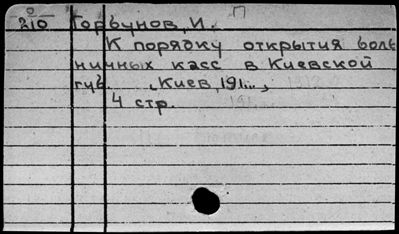 П
0
210 Горбунов, И.
К порядку открытия боль
ничных касс в Киевской
губ. Киев, 191...,
4 стр.